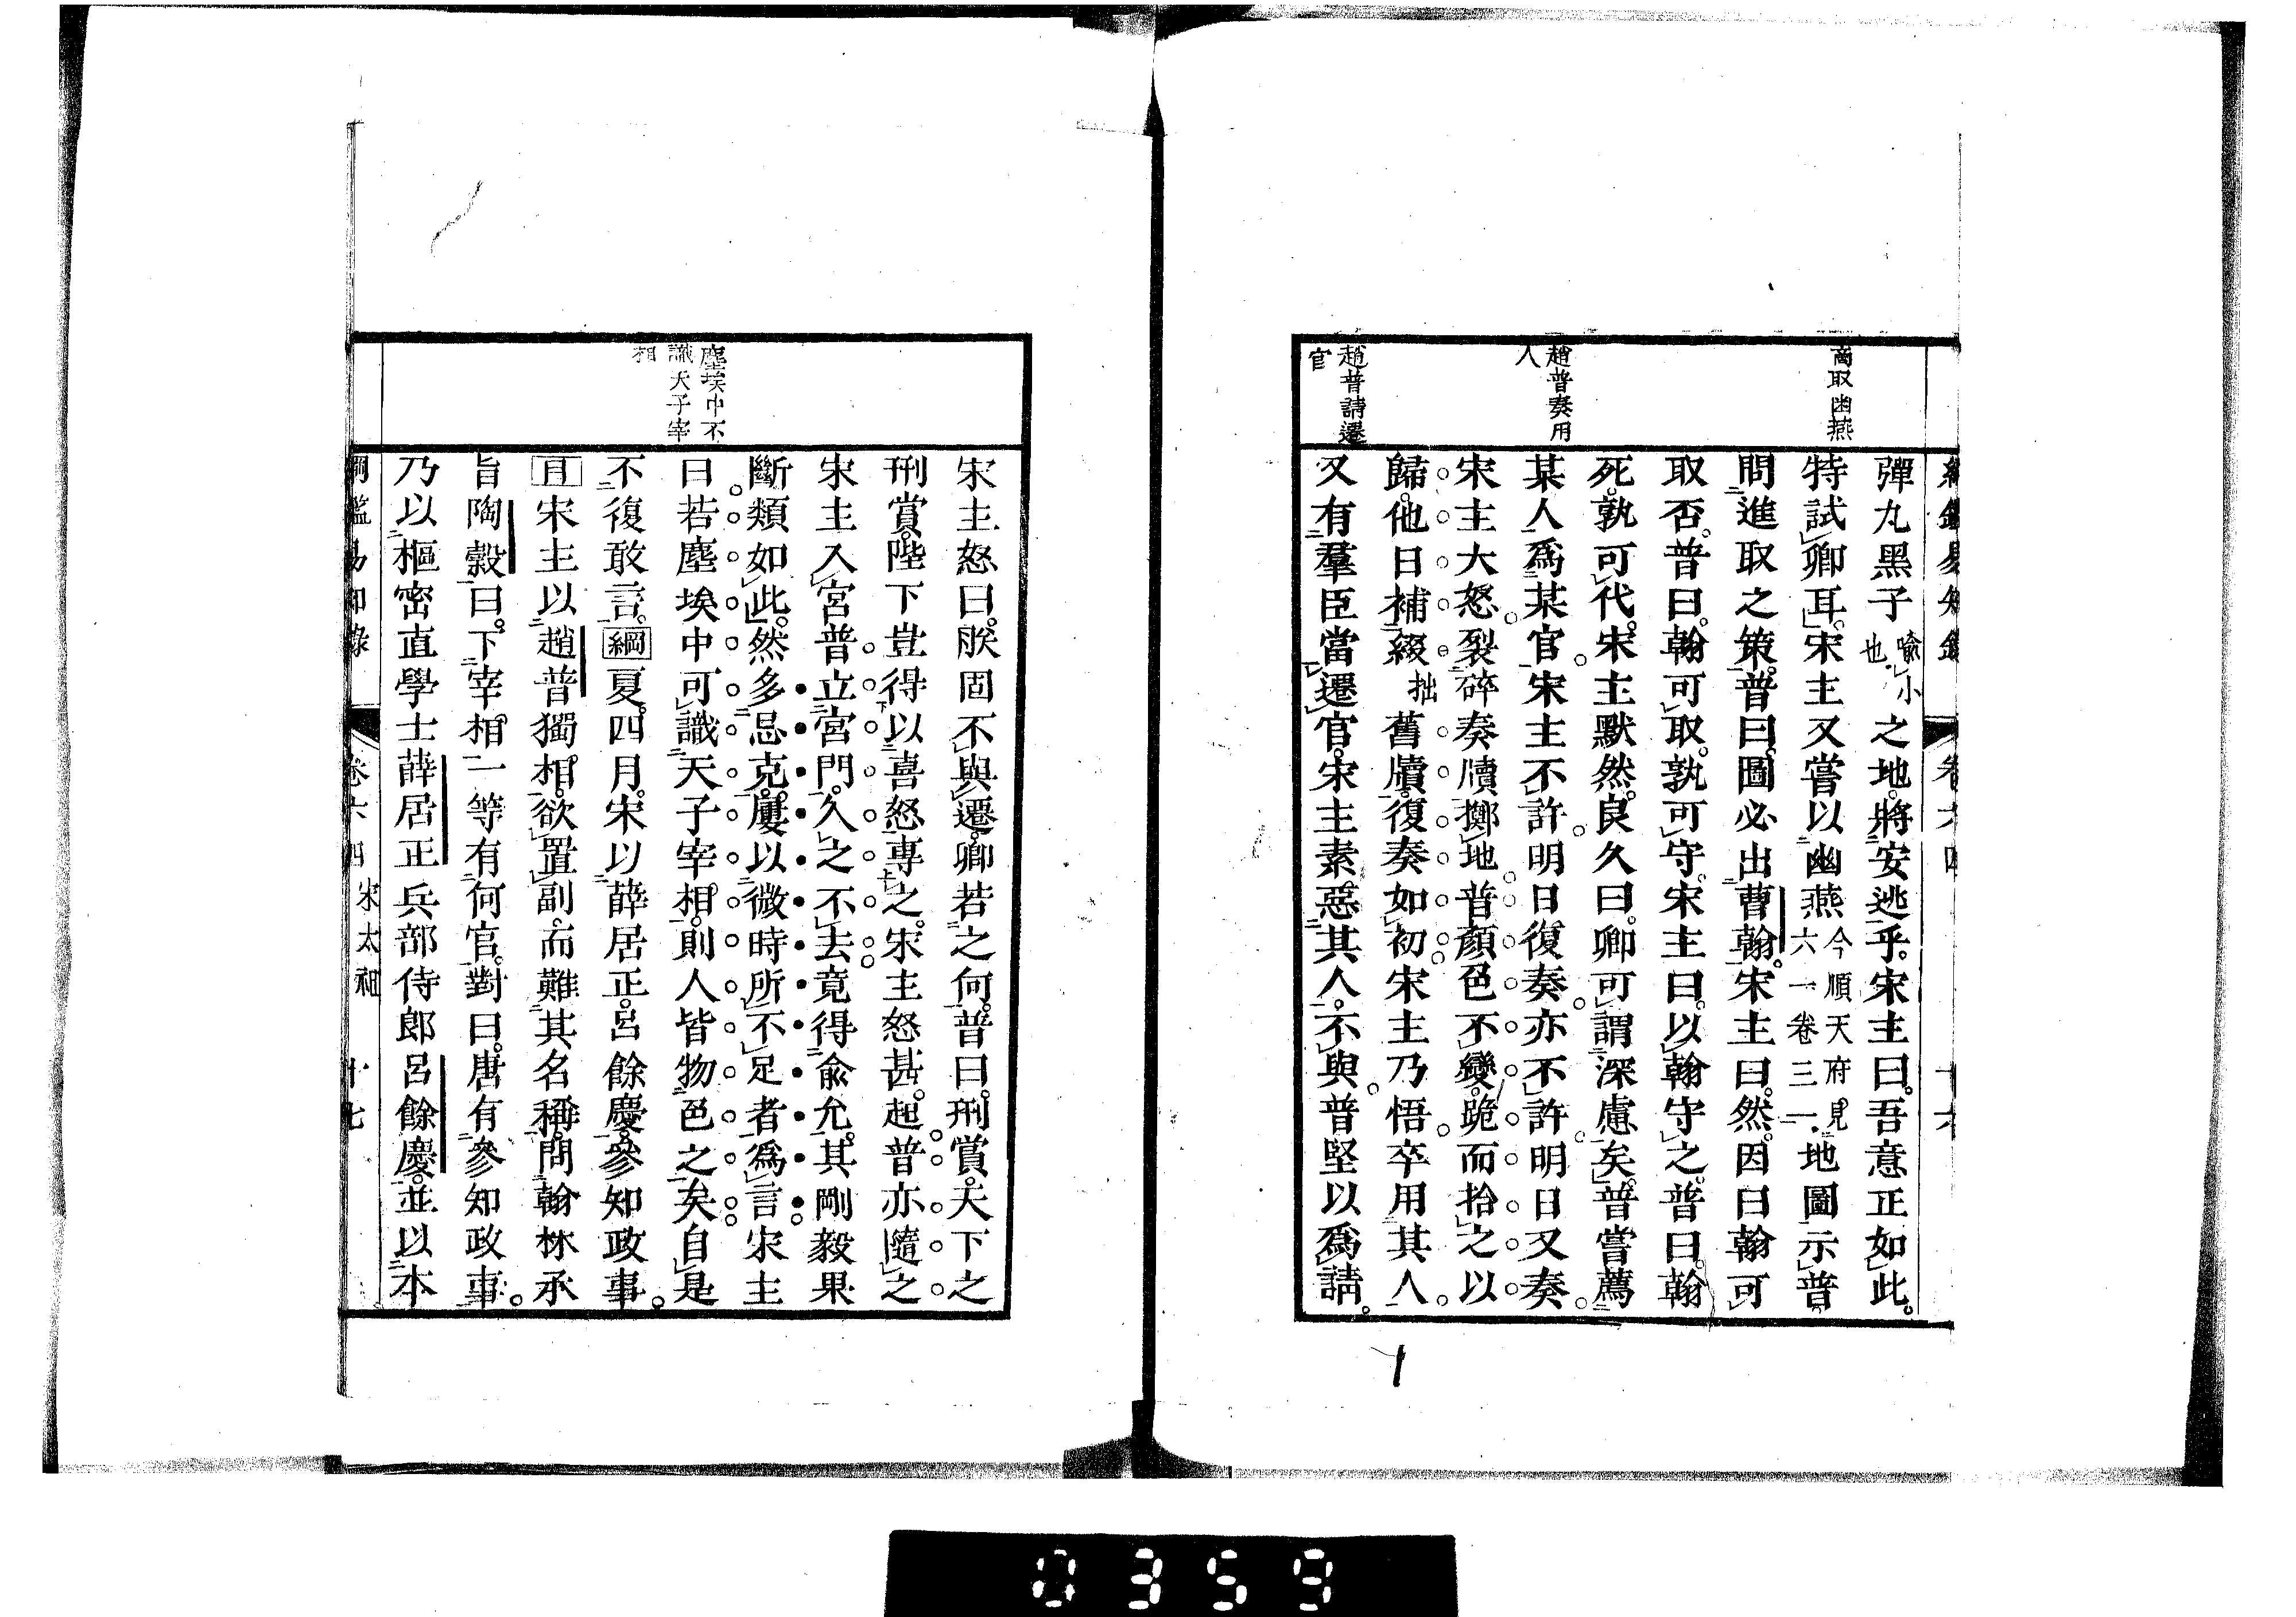 商取幽燕
趙普奏用
人
趙普請遷
官
彈丸黑子喩小也之地。將安逃乎。宋主曰。吾意正如此。
特試卿耳。宋主又嘗以幽燕今順天府見六一卷三一地圖示普。
問進取之策。普曰。圖必出曹翰。宋主曰。然。因曰翰可
取否。普曰。翰可取。孰可守。宋主曰。以翰守之。普曰。翰
死。孰可代。宋主默然。良久曰。卿可謂深慮矣。普嘗薦
某人爲某官。宋主不許。明日復奏。亦不許。明日又奏。
宋主大怒。裂碎奏牘擲地。普顏色不變。跪而拾之以
歸。他日補綴拙舊牘。復奏如初。宋主乃悟。卒用其人。
又有羣臣當遷官。宋主素惡其人。不與。普堅以爲請。
塵埃中不
識天子宰
相
宋主怒曰。朕固不與遷。卿若之何。普曰。刑賞。天下之
刑賞。陛下豈得以喜怒專之。宋主怒甚。起。普亦隨之。
宋主入宮。普立宮門。久之不去。竟得兪允。其剛毅果
斷類如此。然多忌克。屢以微時所不足者爲言。宋主
曰若塵埃中可識天子宰相。則人皆物色之矣。自是
不復敢言。綱夏。四月。宋以薛居正。呂餘慶。參知政事。
目宋主以趙普獨相。欲置副。而難其名稱。問翰林承
旨陶穀曰。下宰相一等有何官。對曰。唐有參知政事。
乃以樞密直學士薛居正兵部侍郎呂餘慶。並以本
綱鑑易知錄 卷六四 宋太祖 十七
0359